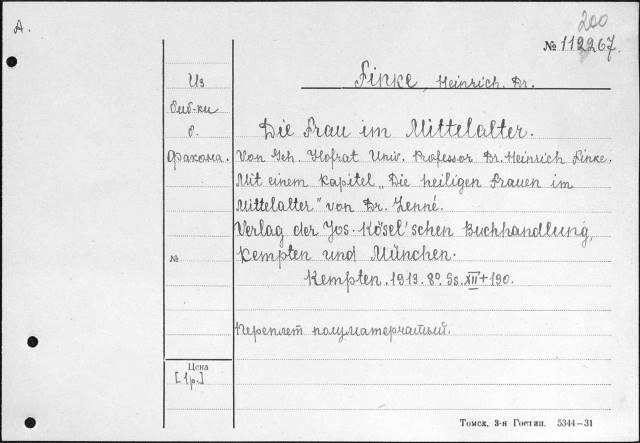 A.
200
№ 112267.
Из
биб-ки
о.
Факома.
№
Цена
[1р.]
Finke, Heinrich. Dr.
Die Frau im Mittelalter.
Von Geh. Hofrat Univ. Professor Dr. Heinrich Finke.
Mit einem Kapitel „Die heiligen Frauen im
Mittelalter" von Dr. Lenné.
Verlag der Jos. Kösel'schen Buchhandlung,
Kempten und München.
Kempten. 1913. 8º. Ss. XII+190.
Переплет полуматерчатый.
Томск, 3-я Гостип. 5344—31